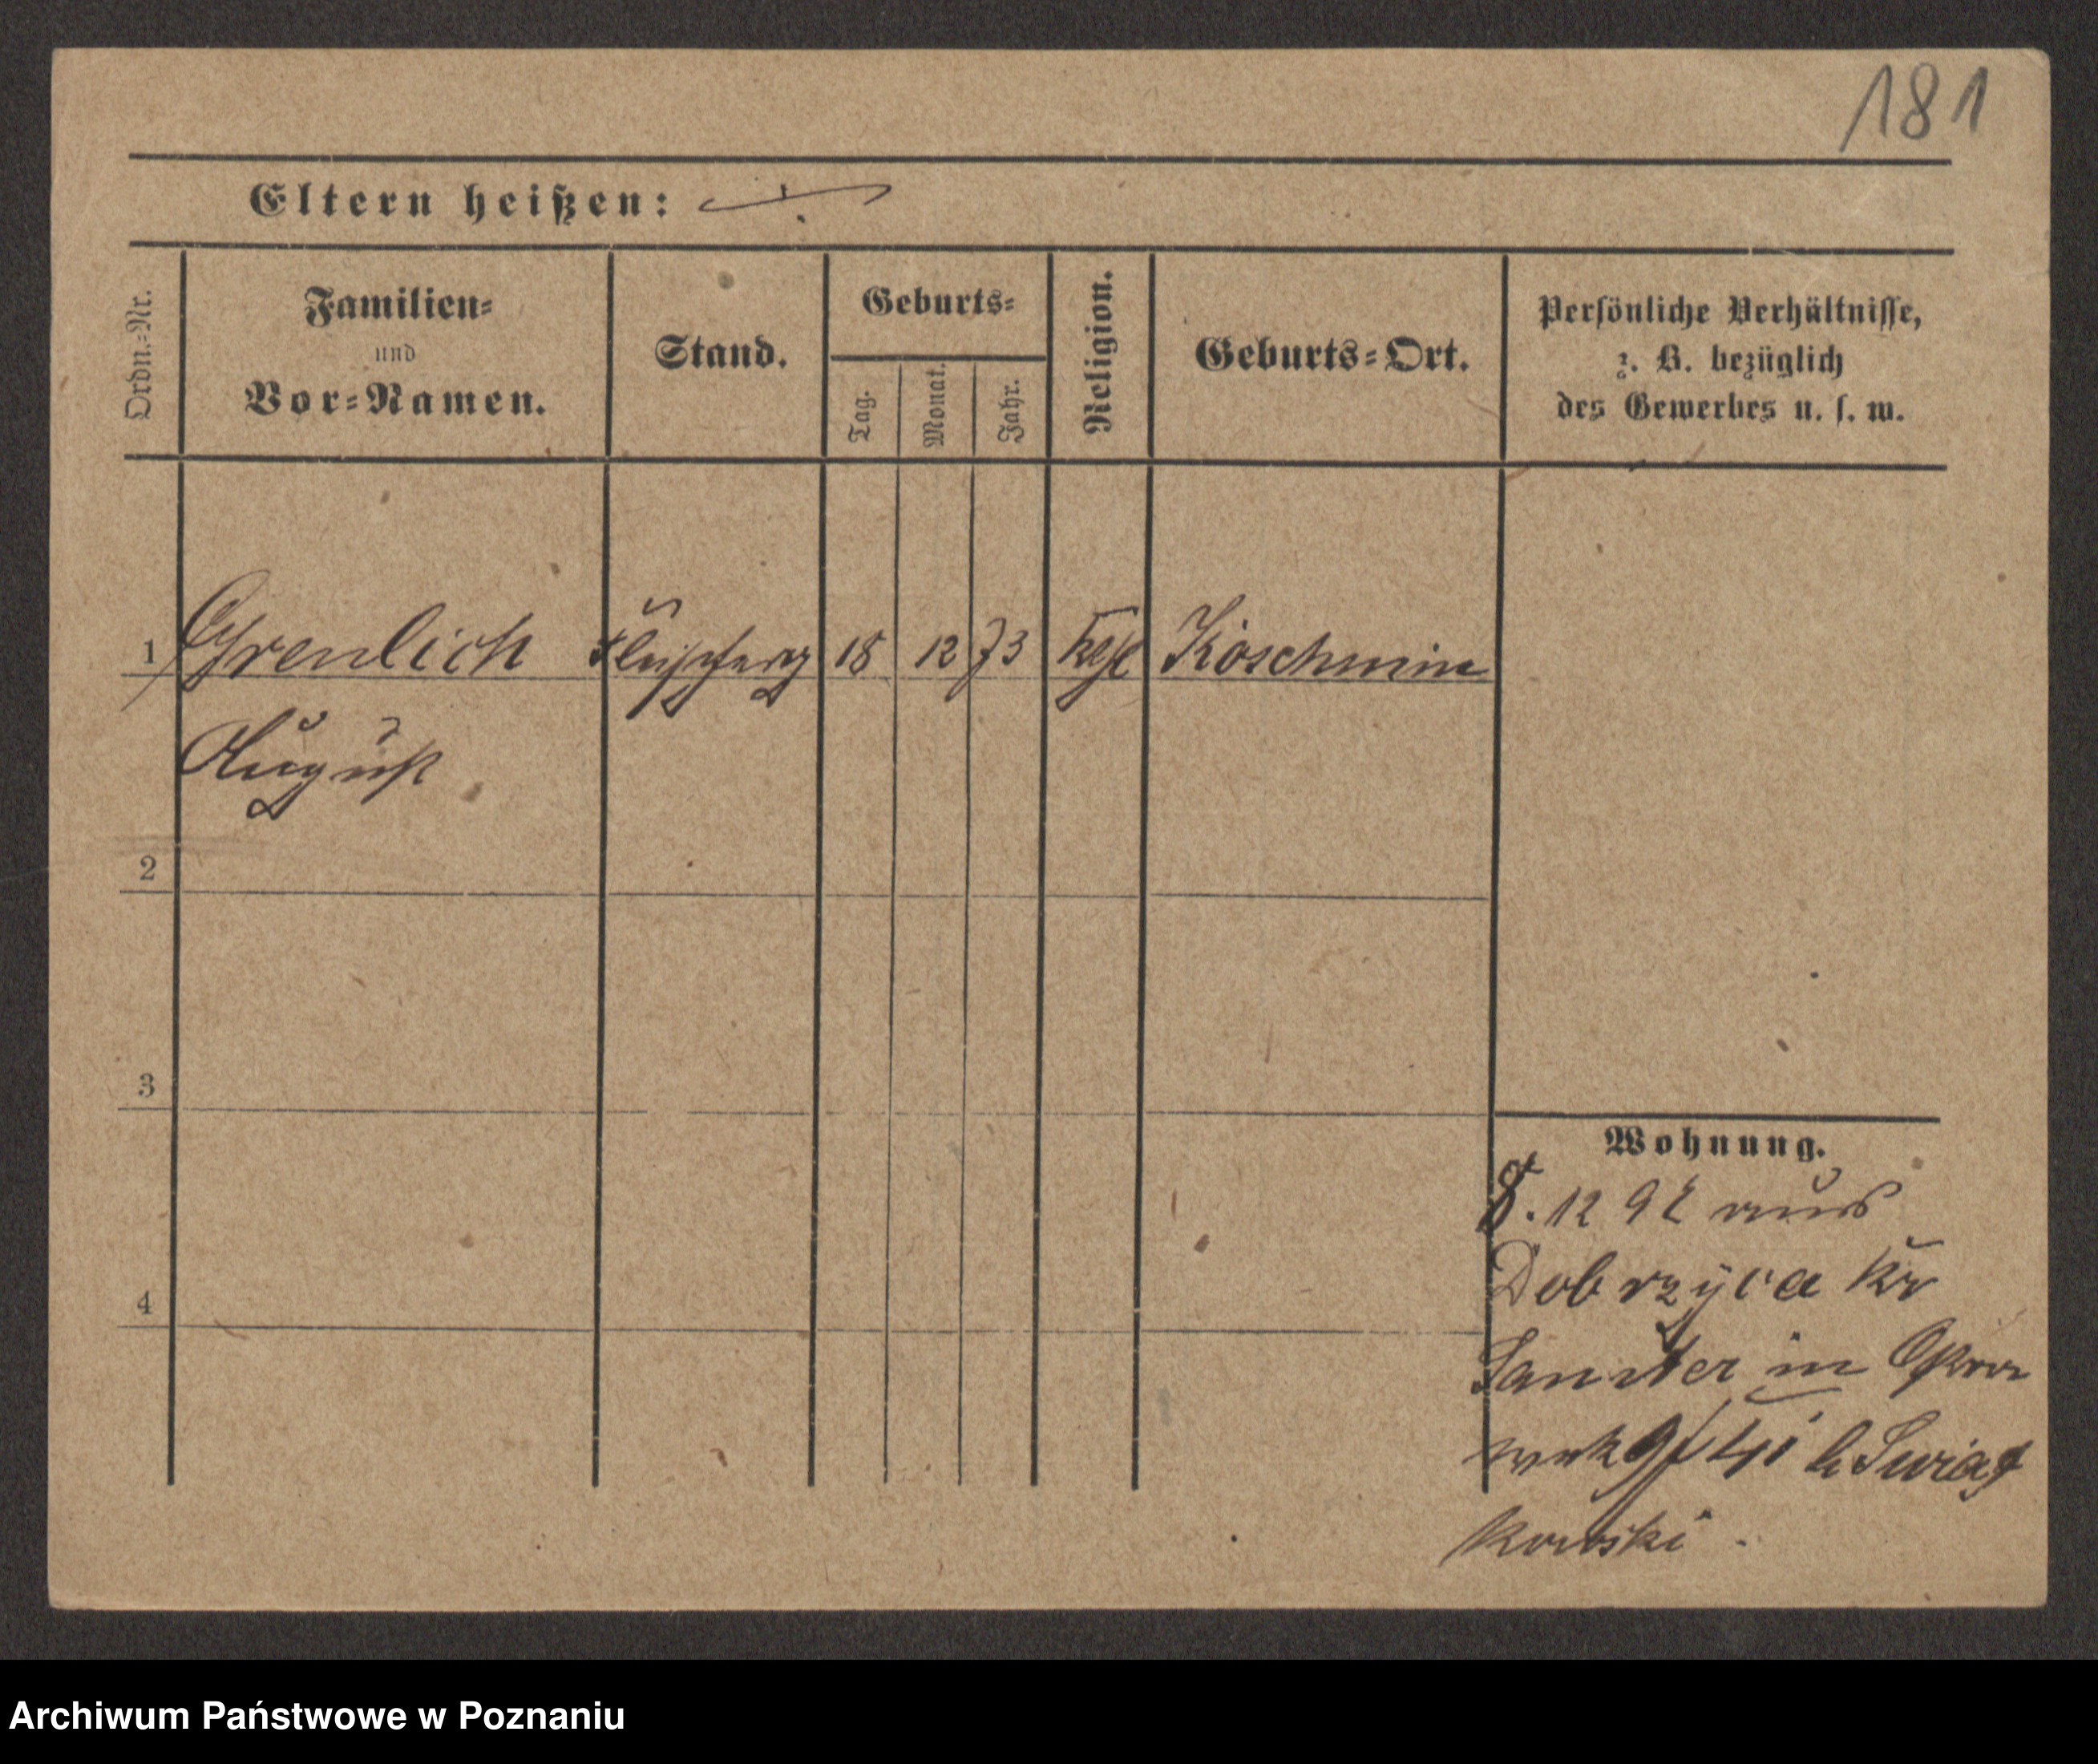 181
Eltern heißen:
Ordn.-Nr.
Familien-
und
Vor-Namen.
Stand.
Geburts-
Tag.
Monat.
Jahr.
Religion.
Geburts-Ort.
Persönliche Verhältnisse,
z. B. bezüglich
des Gewerbes u. s. w.
1 Grenlich 18 12 73 Koschmin
August
2
3
4
Wohnung.
8. 12 92 aus
Dobrzyca Kr
in
b Swiat
kowski.
Archiwum Państwowe w Poznaniu